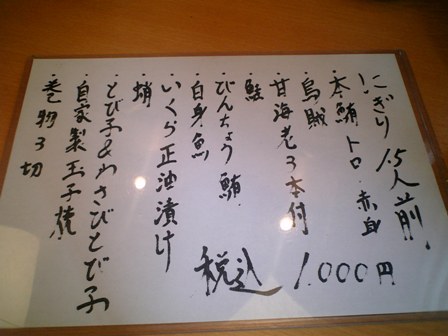 にぎり 1.5人前
・本鮪トロ・赤身
・烏賊
・甘海老3本付
・鮭
・びんちょう鮪
・白身魚
・いくら正油漬け
・蛸
・とび子&わさびとび子
・自家製玉子焼
・巻物3切
税込 1.000円